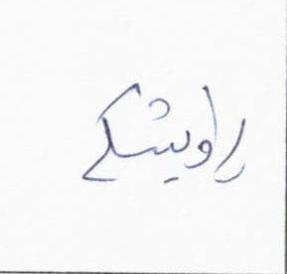 راویشکے